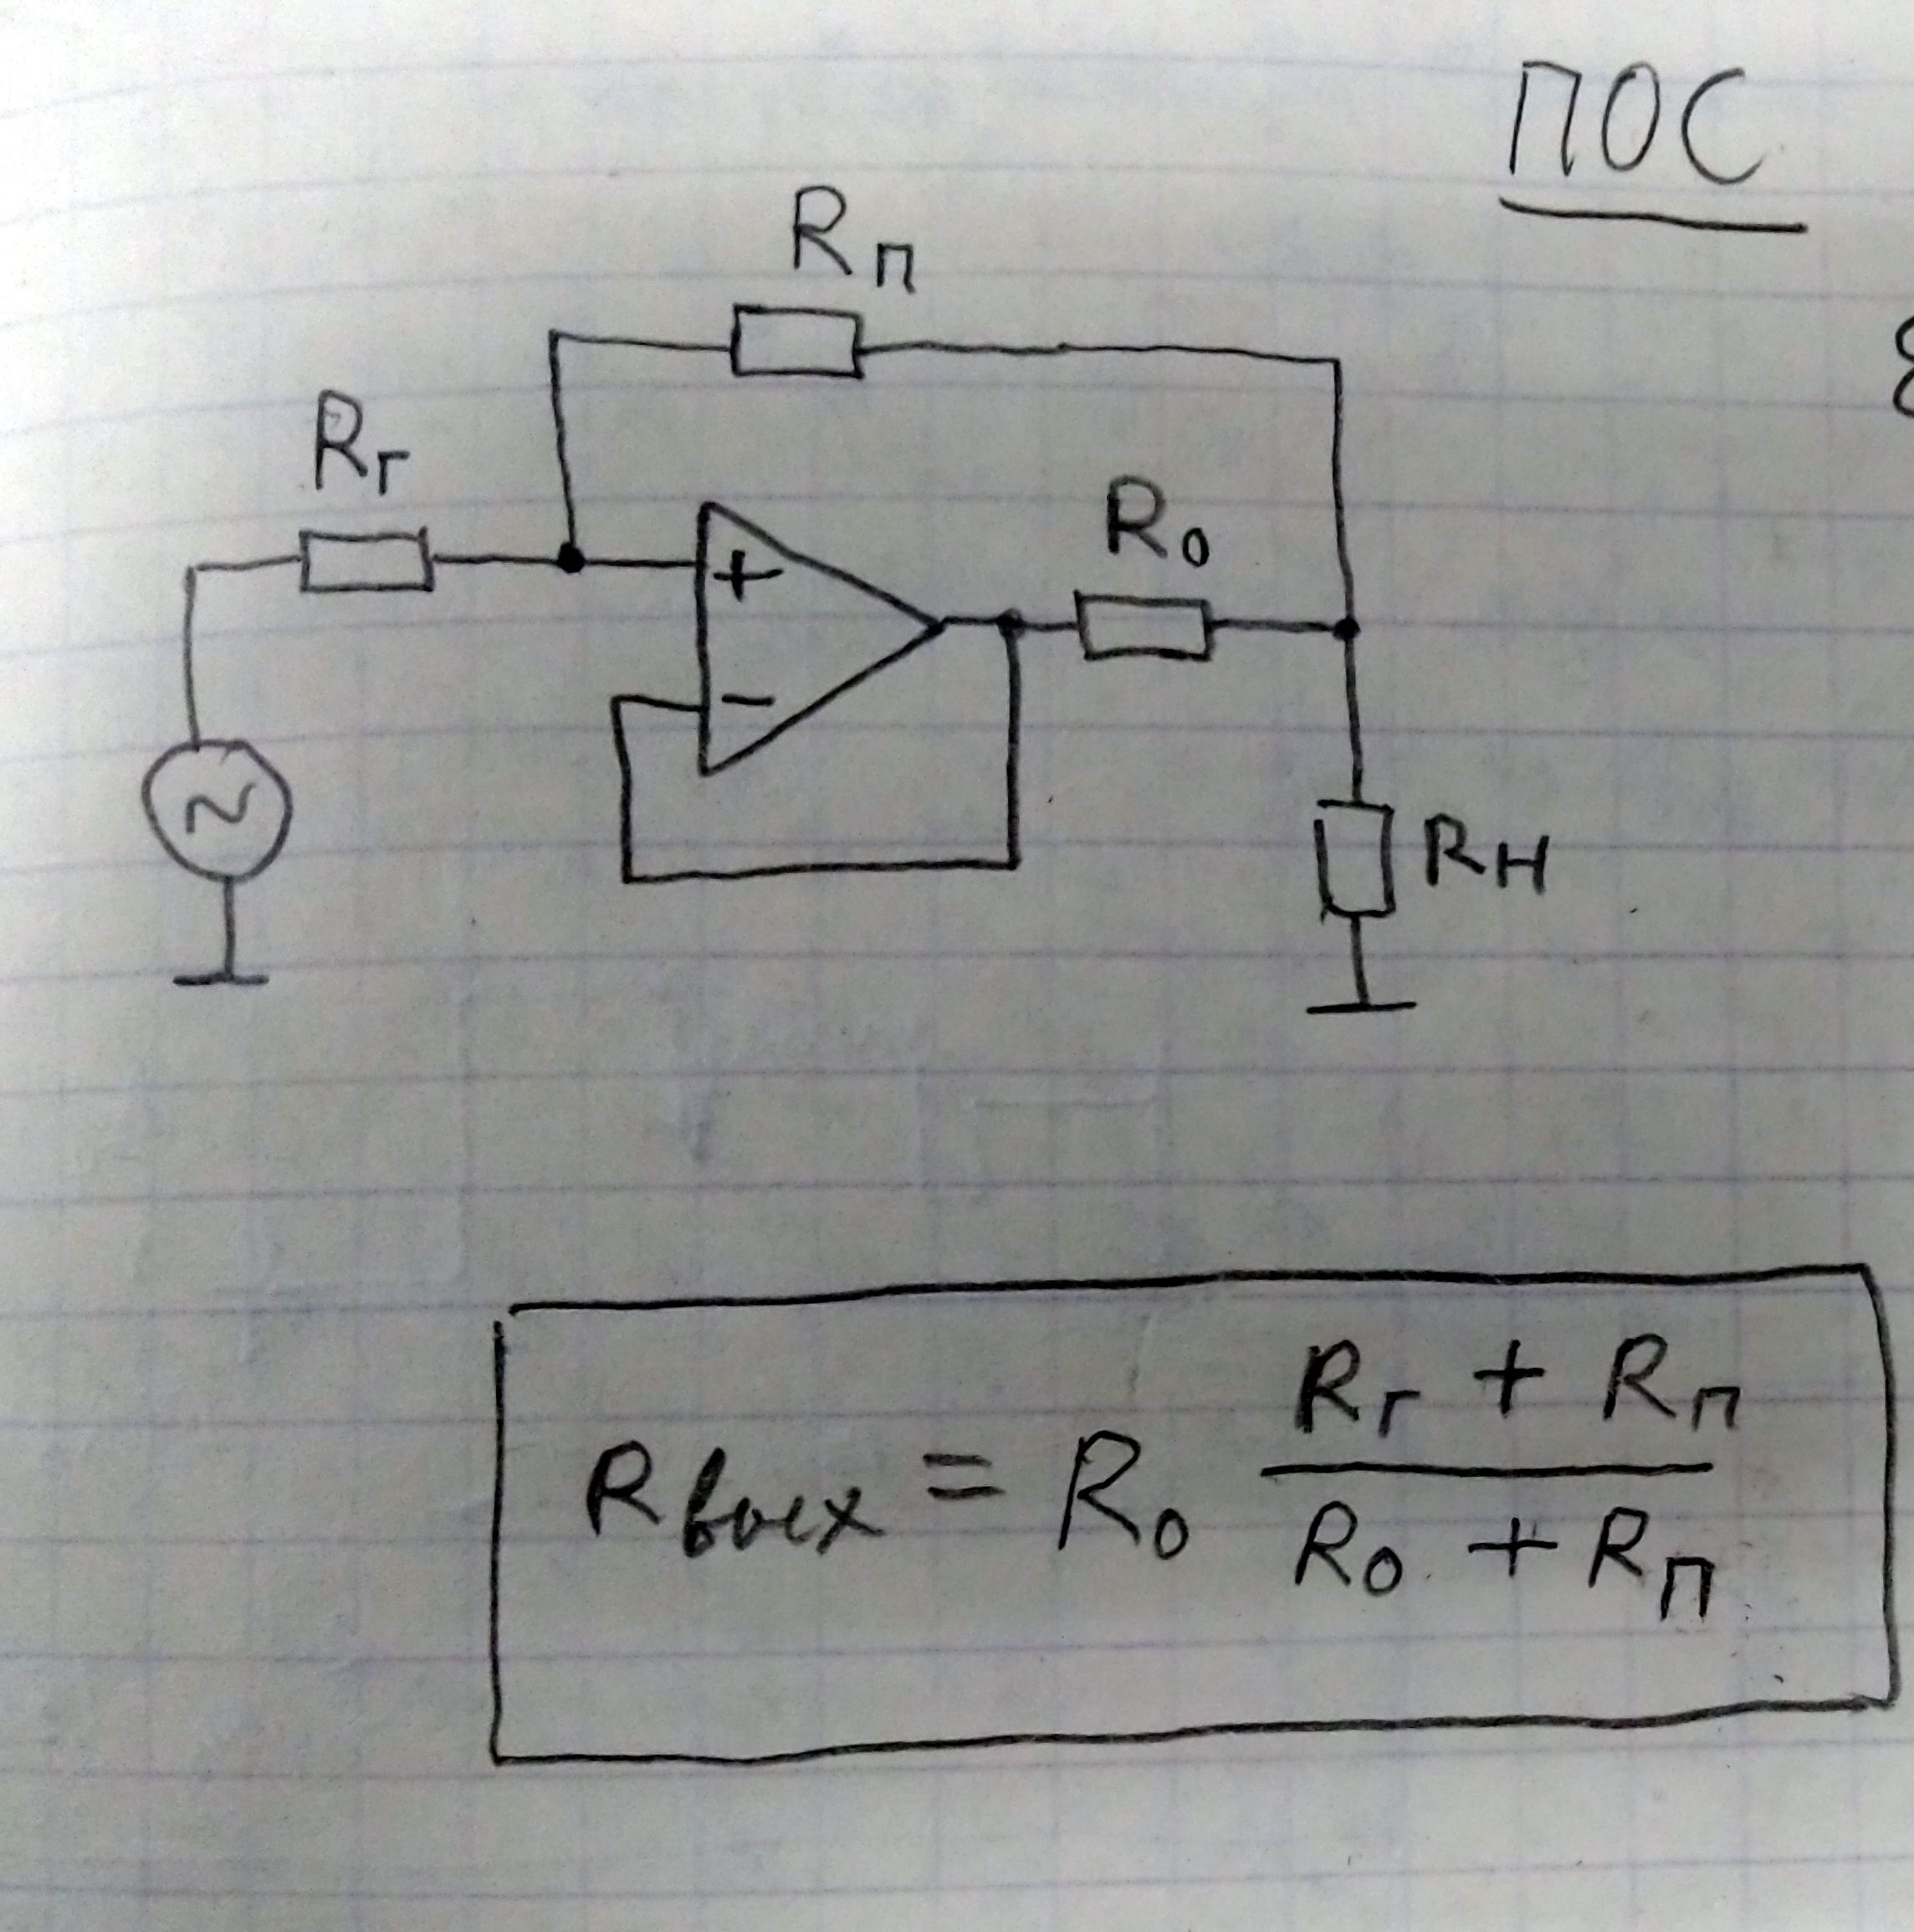 ПОС
Rп
Rг
R0
+
−
~
Rн
Rвых = R0 (Rг + Rп) / (R0 + Rп)